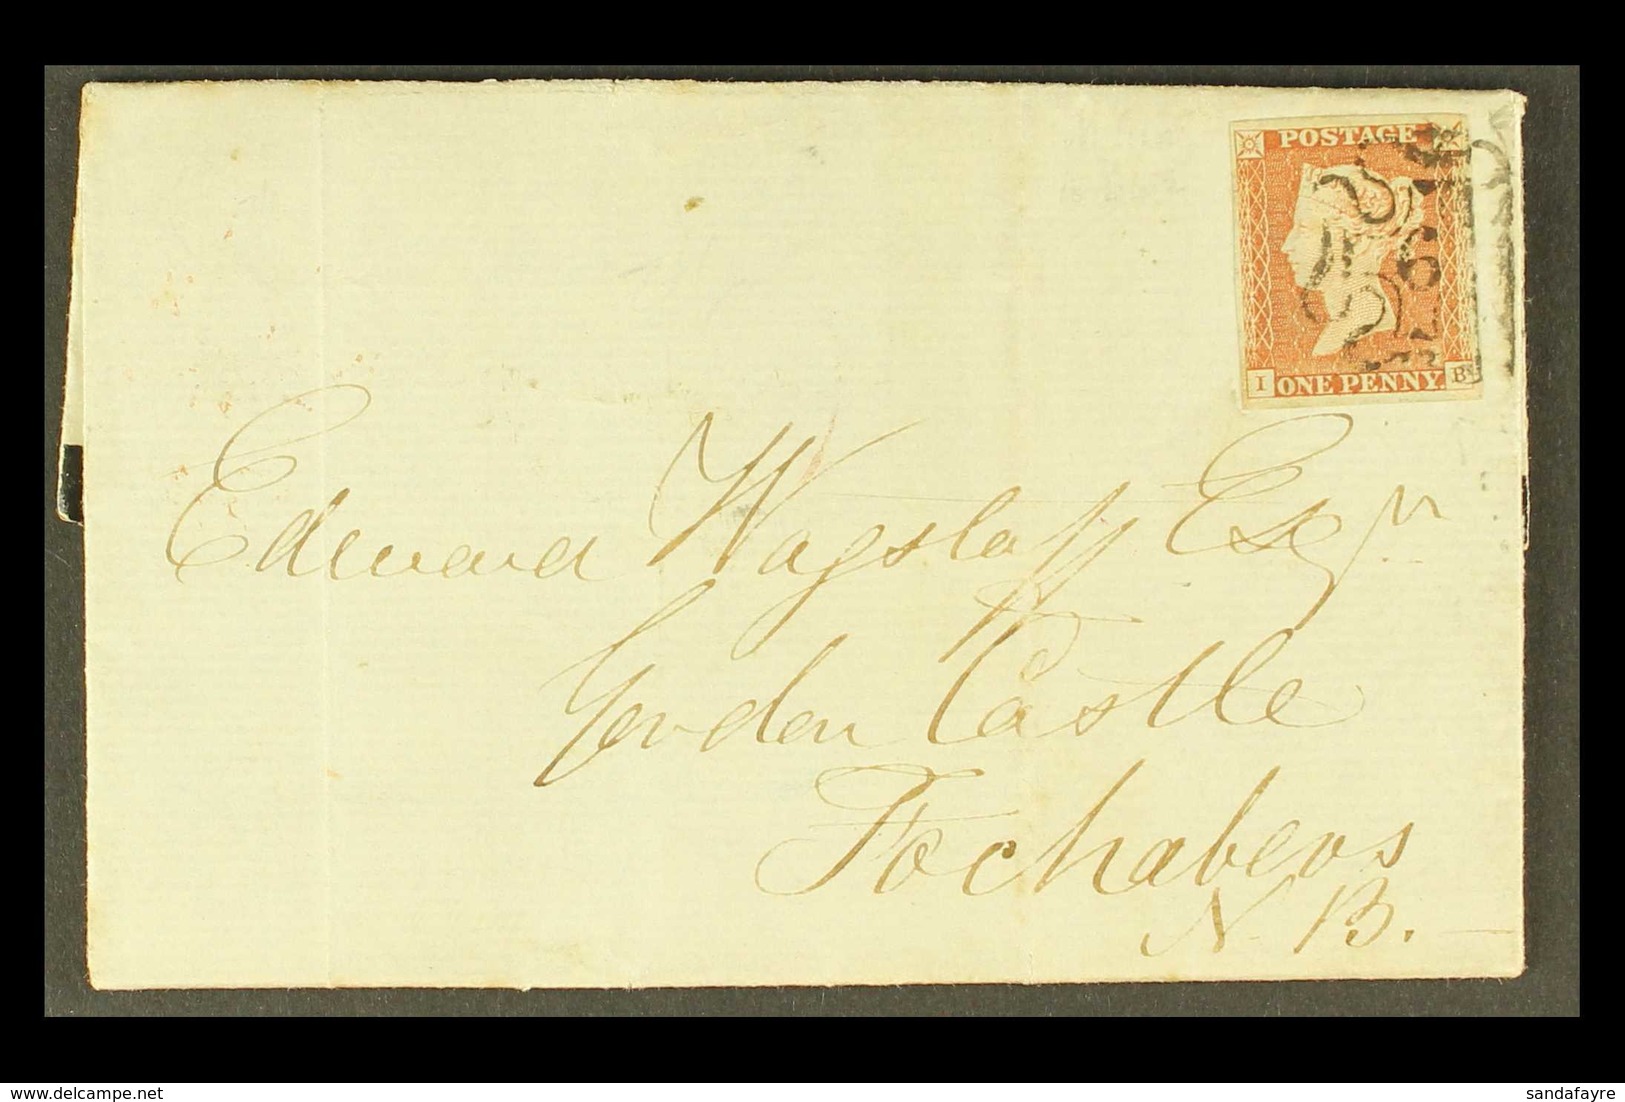 POSTAGE
I ONE PENNY B
Edward Wagstaff Esqr
Gordon Castle
Fochabers
N. B.
delcampe.net
sandafayre